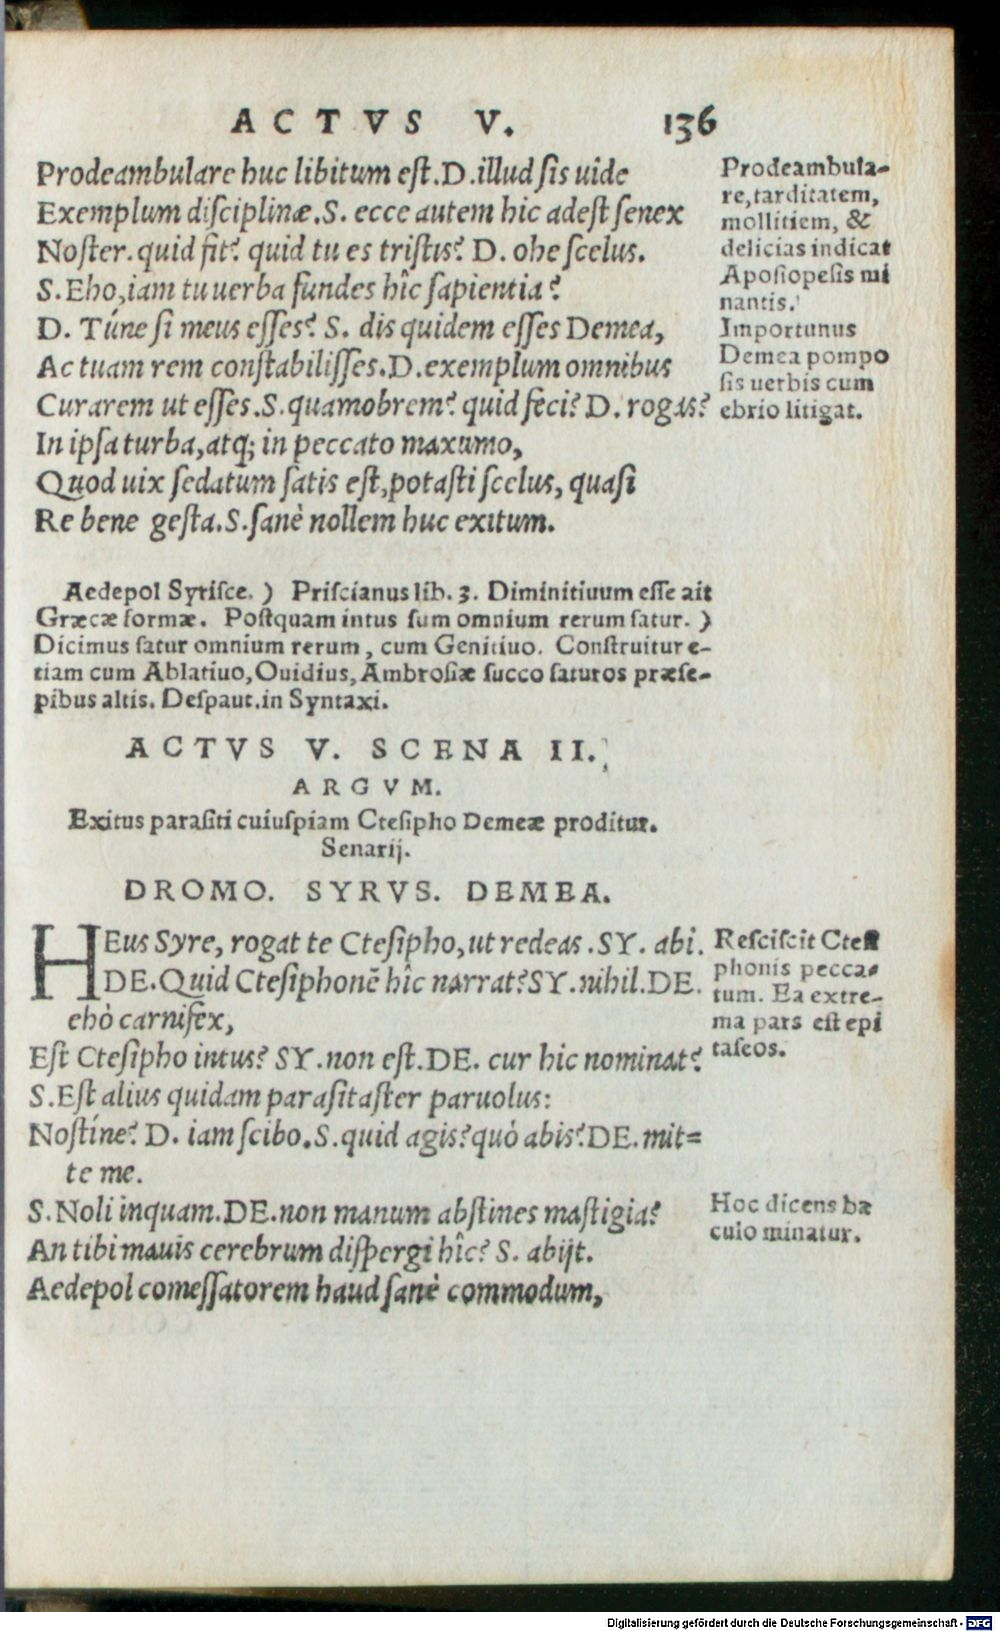 ACTVS V. 136
Prodeambulare huc libitum eſt. D. illud ſis uide
Exemplum diſciplinæ. S. ecce autem hic adeſt ſenex
Noſter. quid fit? quid tu es triſtis? D. ohe ſcelus.
S. Eho, iam tu uerba fundes hîc ſapientia?
D. Túne ſi meus eſſes? S. dis quidem eſſes Demea,
Ac tuam rem conſtabiliſſes. D. exemplum omnibus
Curarem ut eſſes. S. quamobrem? quid feci? D. rogas?
In ipſa turba, atq; in peccato maxumo,
Quod uix ſedatum ſatis eſt, potaſti ſcelus, quaſi
Re bene geſta. S. ſanè nollem huc exitum.
Prodeambula-
re, tarditatem,
mollitiem, &
delicias indicat
Apoſiopeſis mi
nantis.
Importunus
Demea pompo
ſis uerbis cum
ebrio litigat.
Aedepol Syriſce. ) Priſcianus lib. 3. Diminitiuum eſſe ait
Græcæ formæ. Poſtquam intus ſum omnium rerum ſatur. )
Dicimus ſatur omnium rerum, cum Genitiuo. Conſtruitur e-
tiam cum Ablatiuo, Ouidius, Ambroſiæ ſucco ſaturos præſe-
pibus altis. Deſpaut. in Syntaxi.
ACTVS V. SCENA II.
ARGVM.
Exitus paraſiti cuiuſpiam Cteſipho Demeæ proditur.
Senarij.
DROMO. SYRVS. DEMEA.
HEus Syre, rogat te Cteſipho, ut redeas. SY. abi.
DE. Quid Cteſiphonē hîc narrat? SY. nihil. DE.
ehò carnifex,
Eſt Cteſipho intus? SY. non eſt. DE. cur hic nominat?
S. Eſt alius quidam paraſitaſter paruolus:
Noſtíne? D. iam ſcibo. S. quid agis? quò abis? DE. mit=
te me.
S. Noli inquam. DE. non manum abſtines maſtigia?
An tibi mauis cerebrum diſpergi hîc? S. abijt.
Aedepol comeſſatorem haud ſanè commodum,
Reſciſcit Cteſi
phonis pecca-
tum. Ea extre-
ma pars eſt epi
taſeos.
Hoc dicens ba
culo minatur.
Digitalisierung gefördert durch die Deutsche Forschungsgemeinschaft - DFG